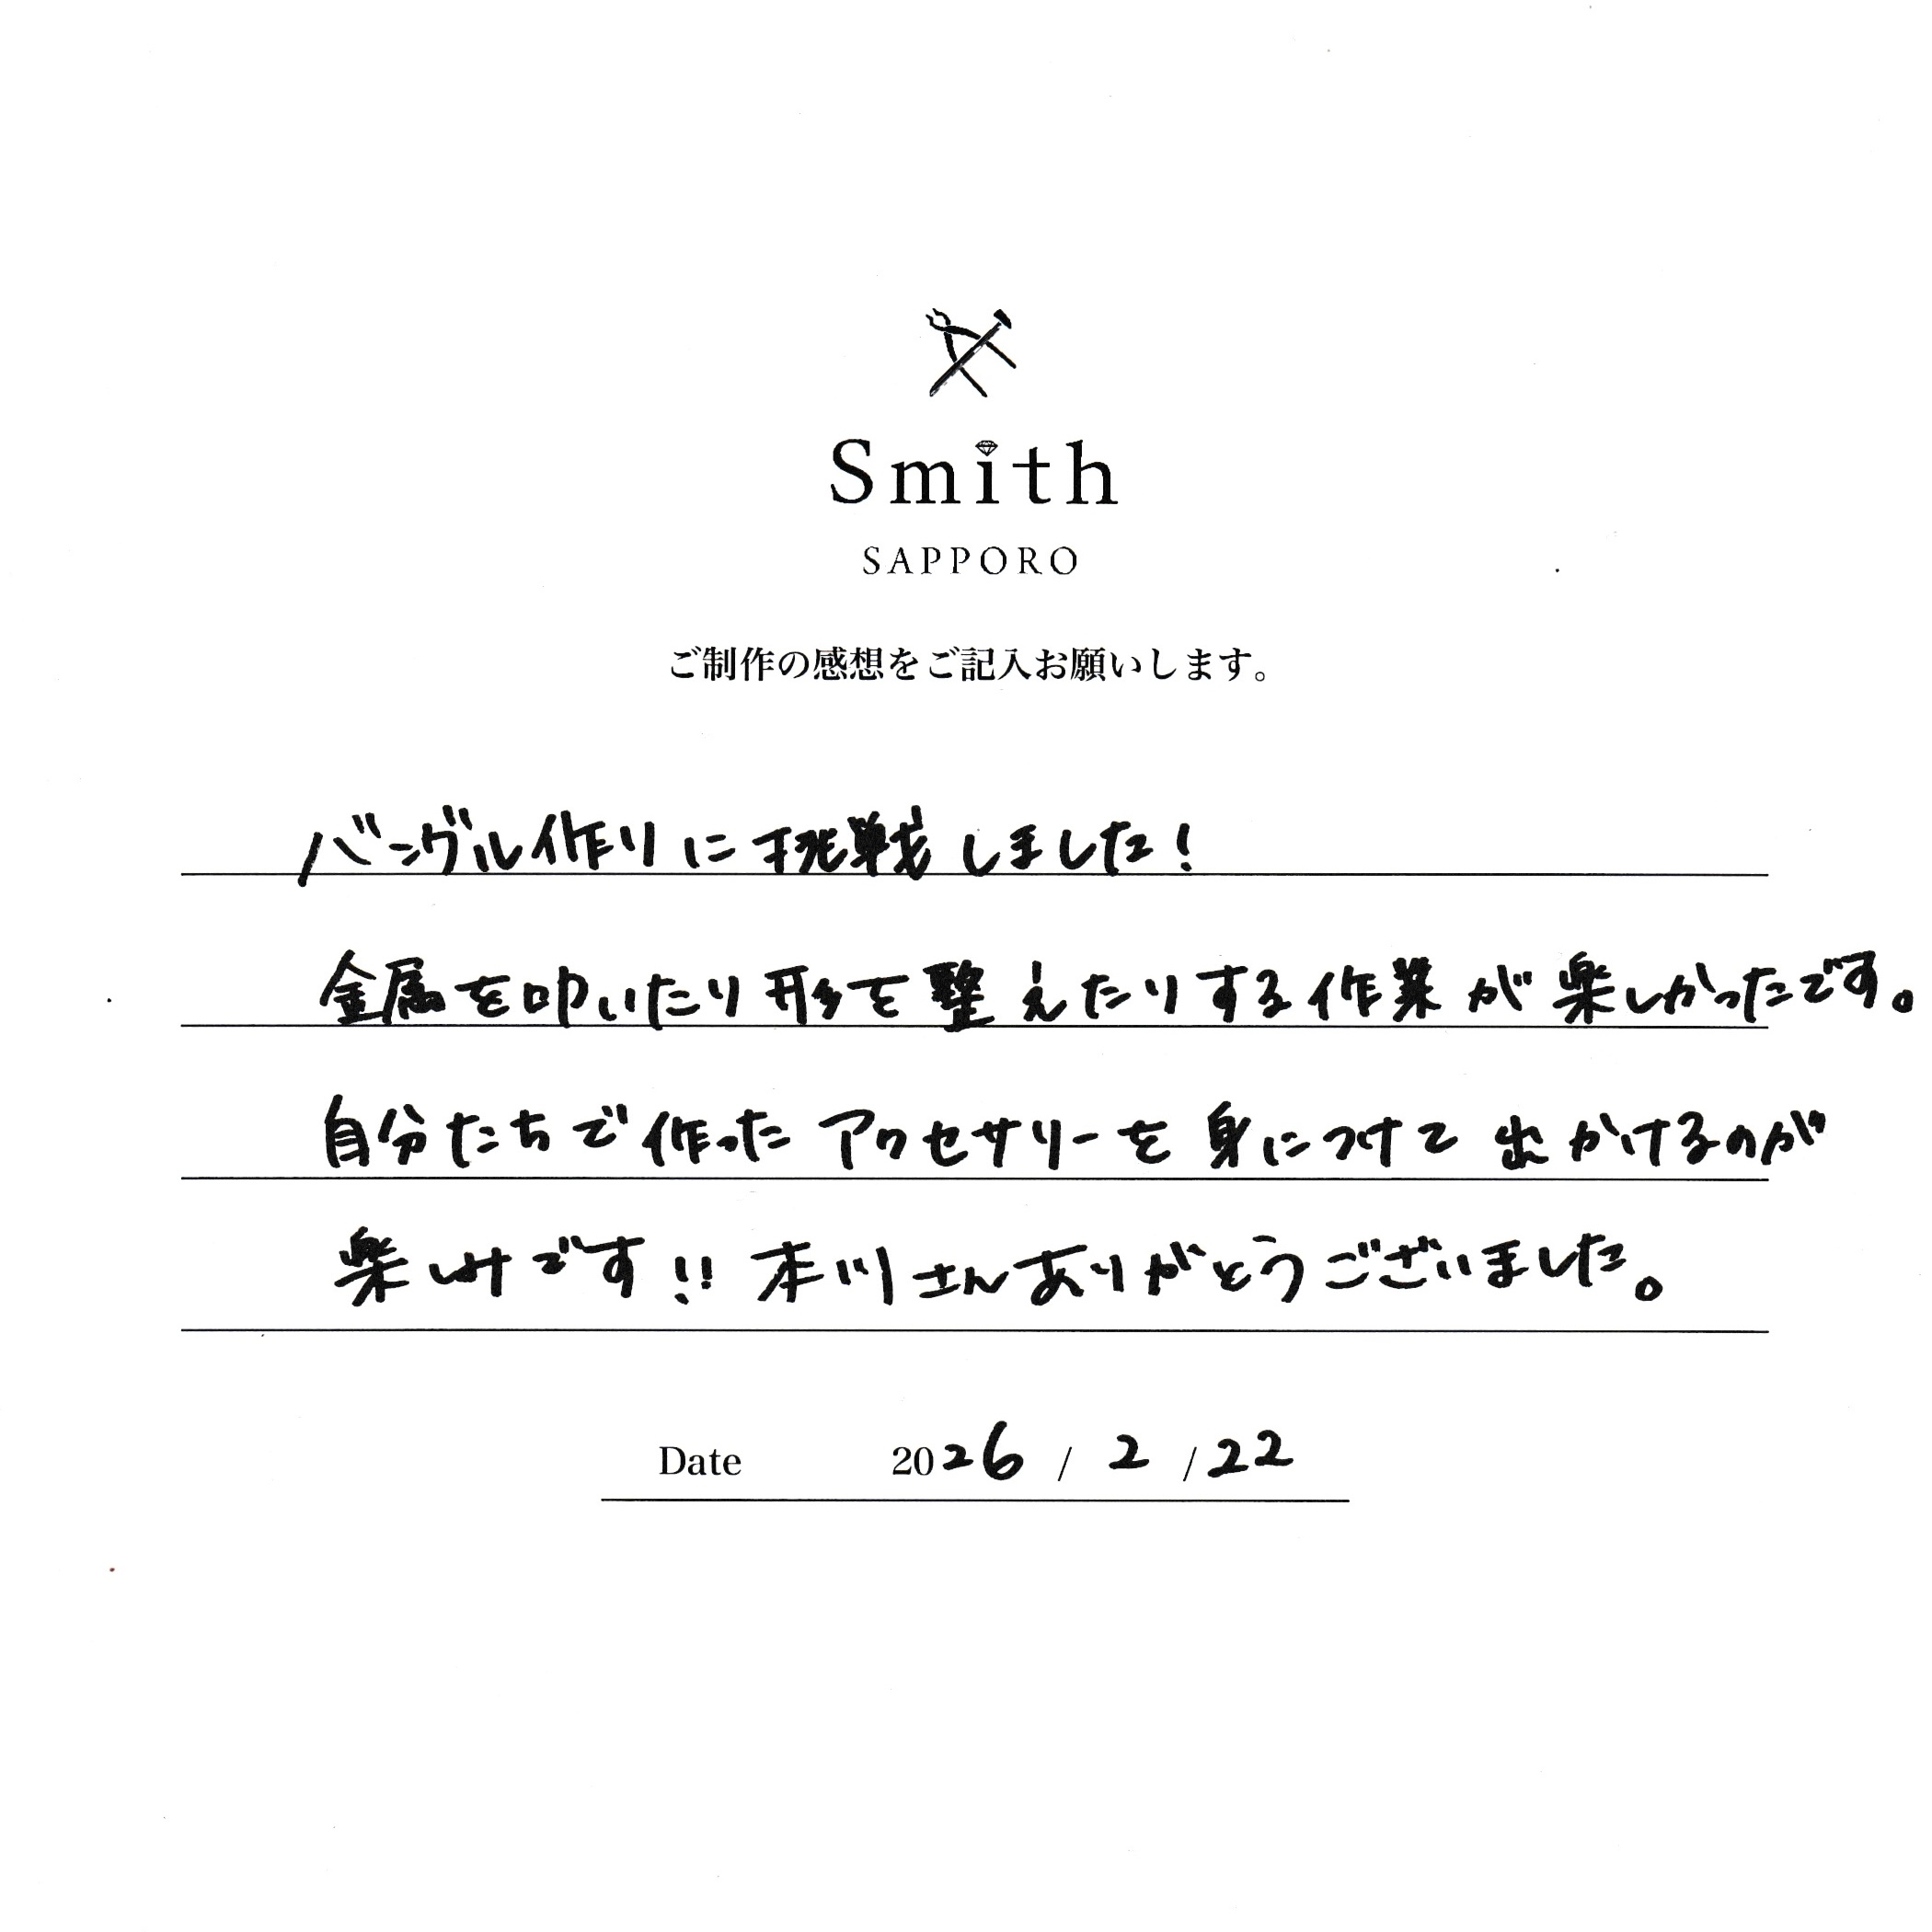 Smith
SAPPORO
ご制作の感想をご記入お願いします。
バングル作りに挑戦しました！
金属を叩いたり形を整えたりする作業が楽しかったです。
自分たちで作ったアクセサリーを身につけて出かけるのが
楽しみです!! 木川さんありがとうございました。
Date 2026 / 2 / 22